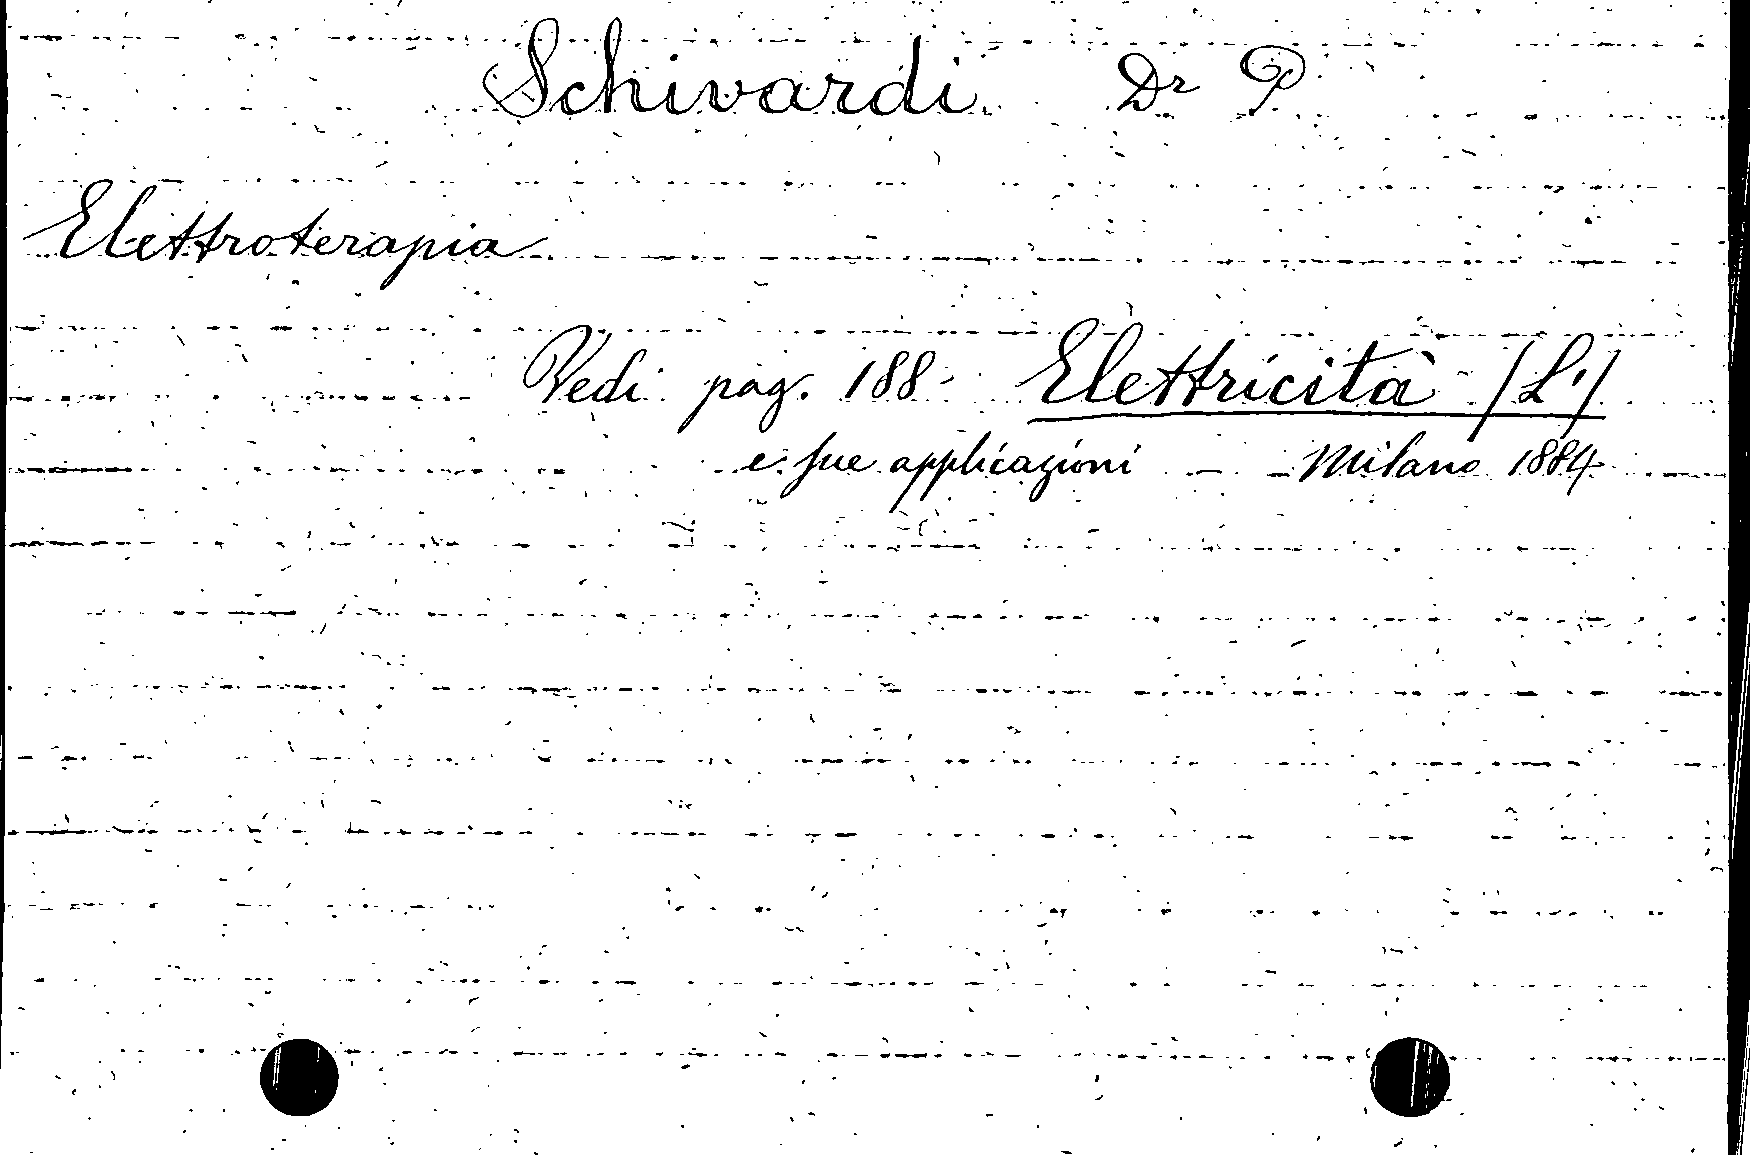 Schivardi Dr P
Elettroterapia
Vedi pag. 188 - Elettricità (L')
e sue applicazioni - Milano 1884